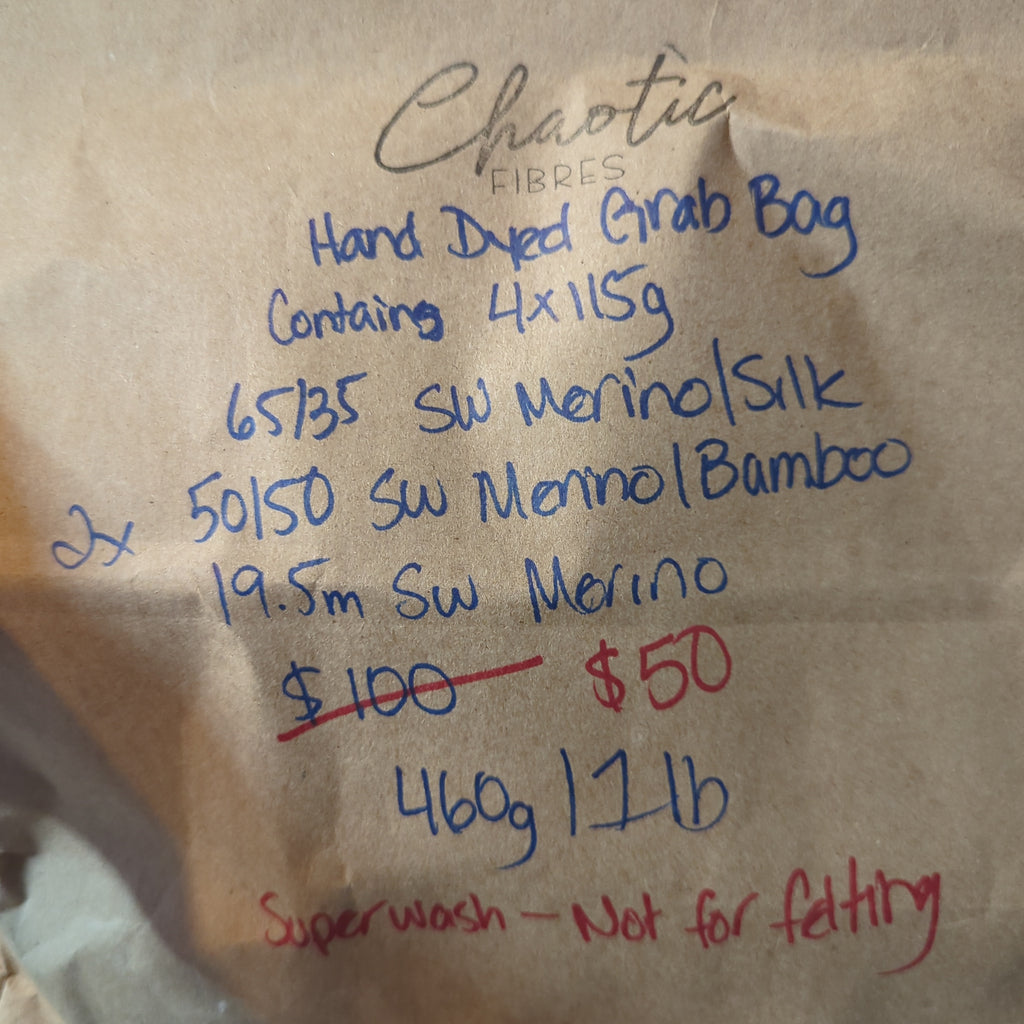 Chaotic
FIBRES
Hand Dyed Grab Bag
Contains 4x115g
65/35 SW Merino/Silk
2x 50/50 SW Merino/Bamboo
19.5m SW Merino
$100 $50
460g / 1 lb
Superwash - Not for felting